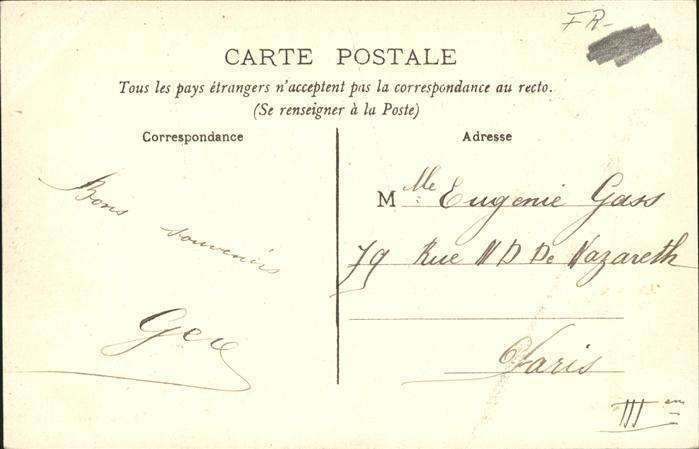 FR-
CARTE POSTALE
Tous les pays étrangers n'acceptent pas la correspondance au recto.
(Se renseigner à la Poste)
Correspondance
Bons
souvenirs
Adresse
M lle Eugenie Gass
79 Rue N D De Nazareth
Paris
III em